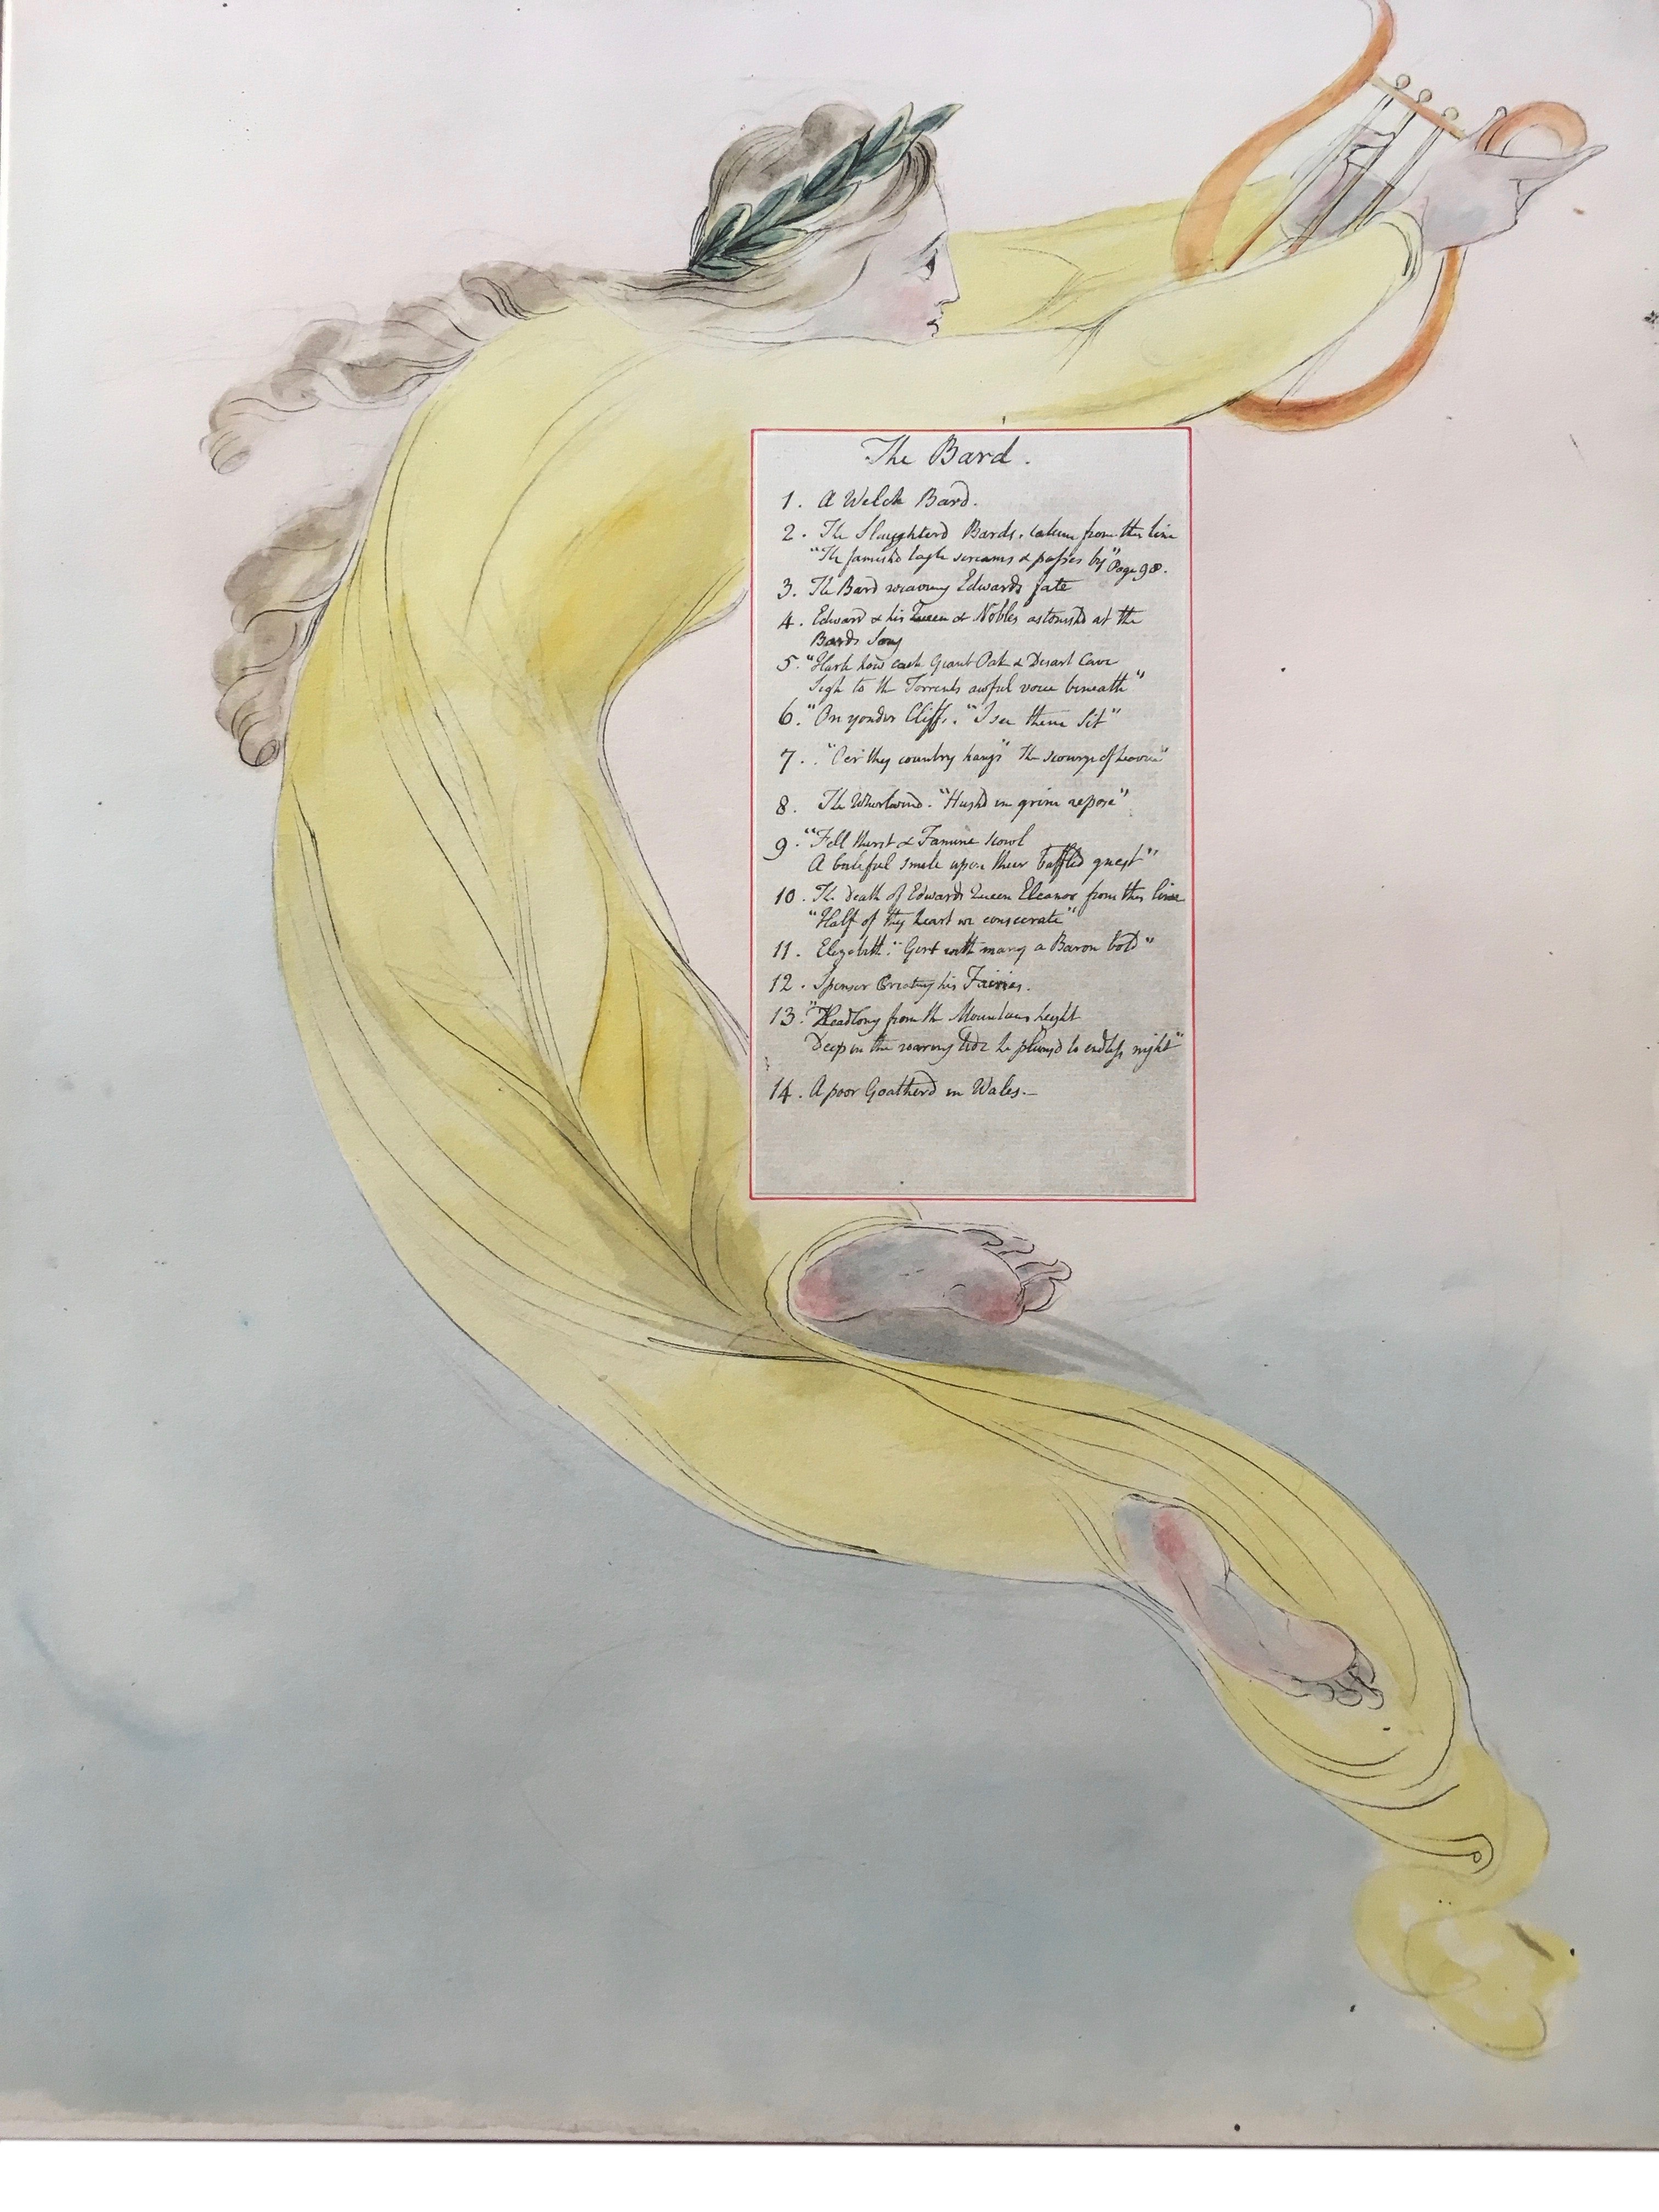 The Bard.
1. A Welch Bard.
2. The Slaughterd Bards, taken from the line
"The famishd Eagle screams & passes by" Page 98.
3. The Bard weaving Edwards fate
4. Edward & his Queen & Nobles astonishd at the
Bards Song
5. "Hark how each Giant Oak & Desart Cave
Sigh to the Torrents awful voice beneath"
6. "On yonder Cliffs. "I see them Sit"
7. "O'er thy country hangs" The scourge of heaven"
8. The Whirlwind. "Hushd in grim repose"
9. "Fell thirst & Famine scowl
A baleful smile upon their baffled guest"
10. The death of Edwards Queen Eleanor from this line
"Half of thy heart we consecrate"
11. Elizabeth. "Girt with many a Baron bold"
12. Spenser Creating his Fairies.
13. "Headlong from the Mountains height
Deep in the roaring tide he plung'd to endless night"
14. A poor Goatherd in Wales.—